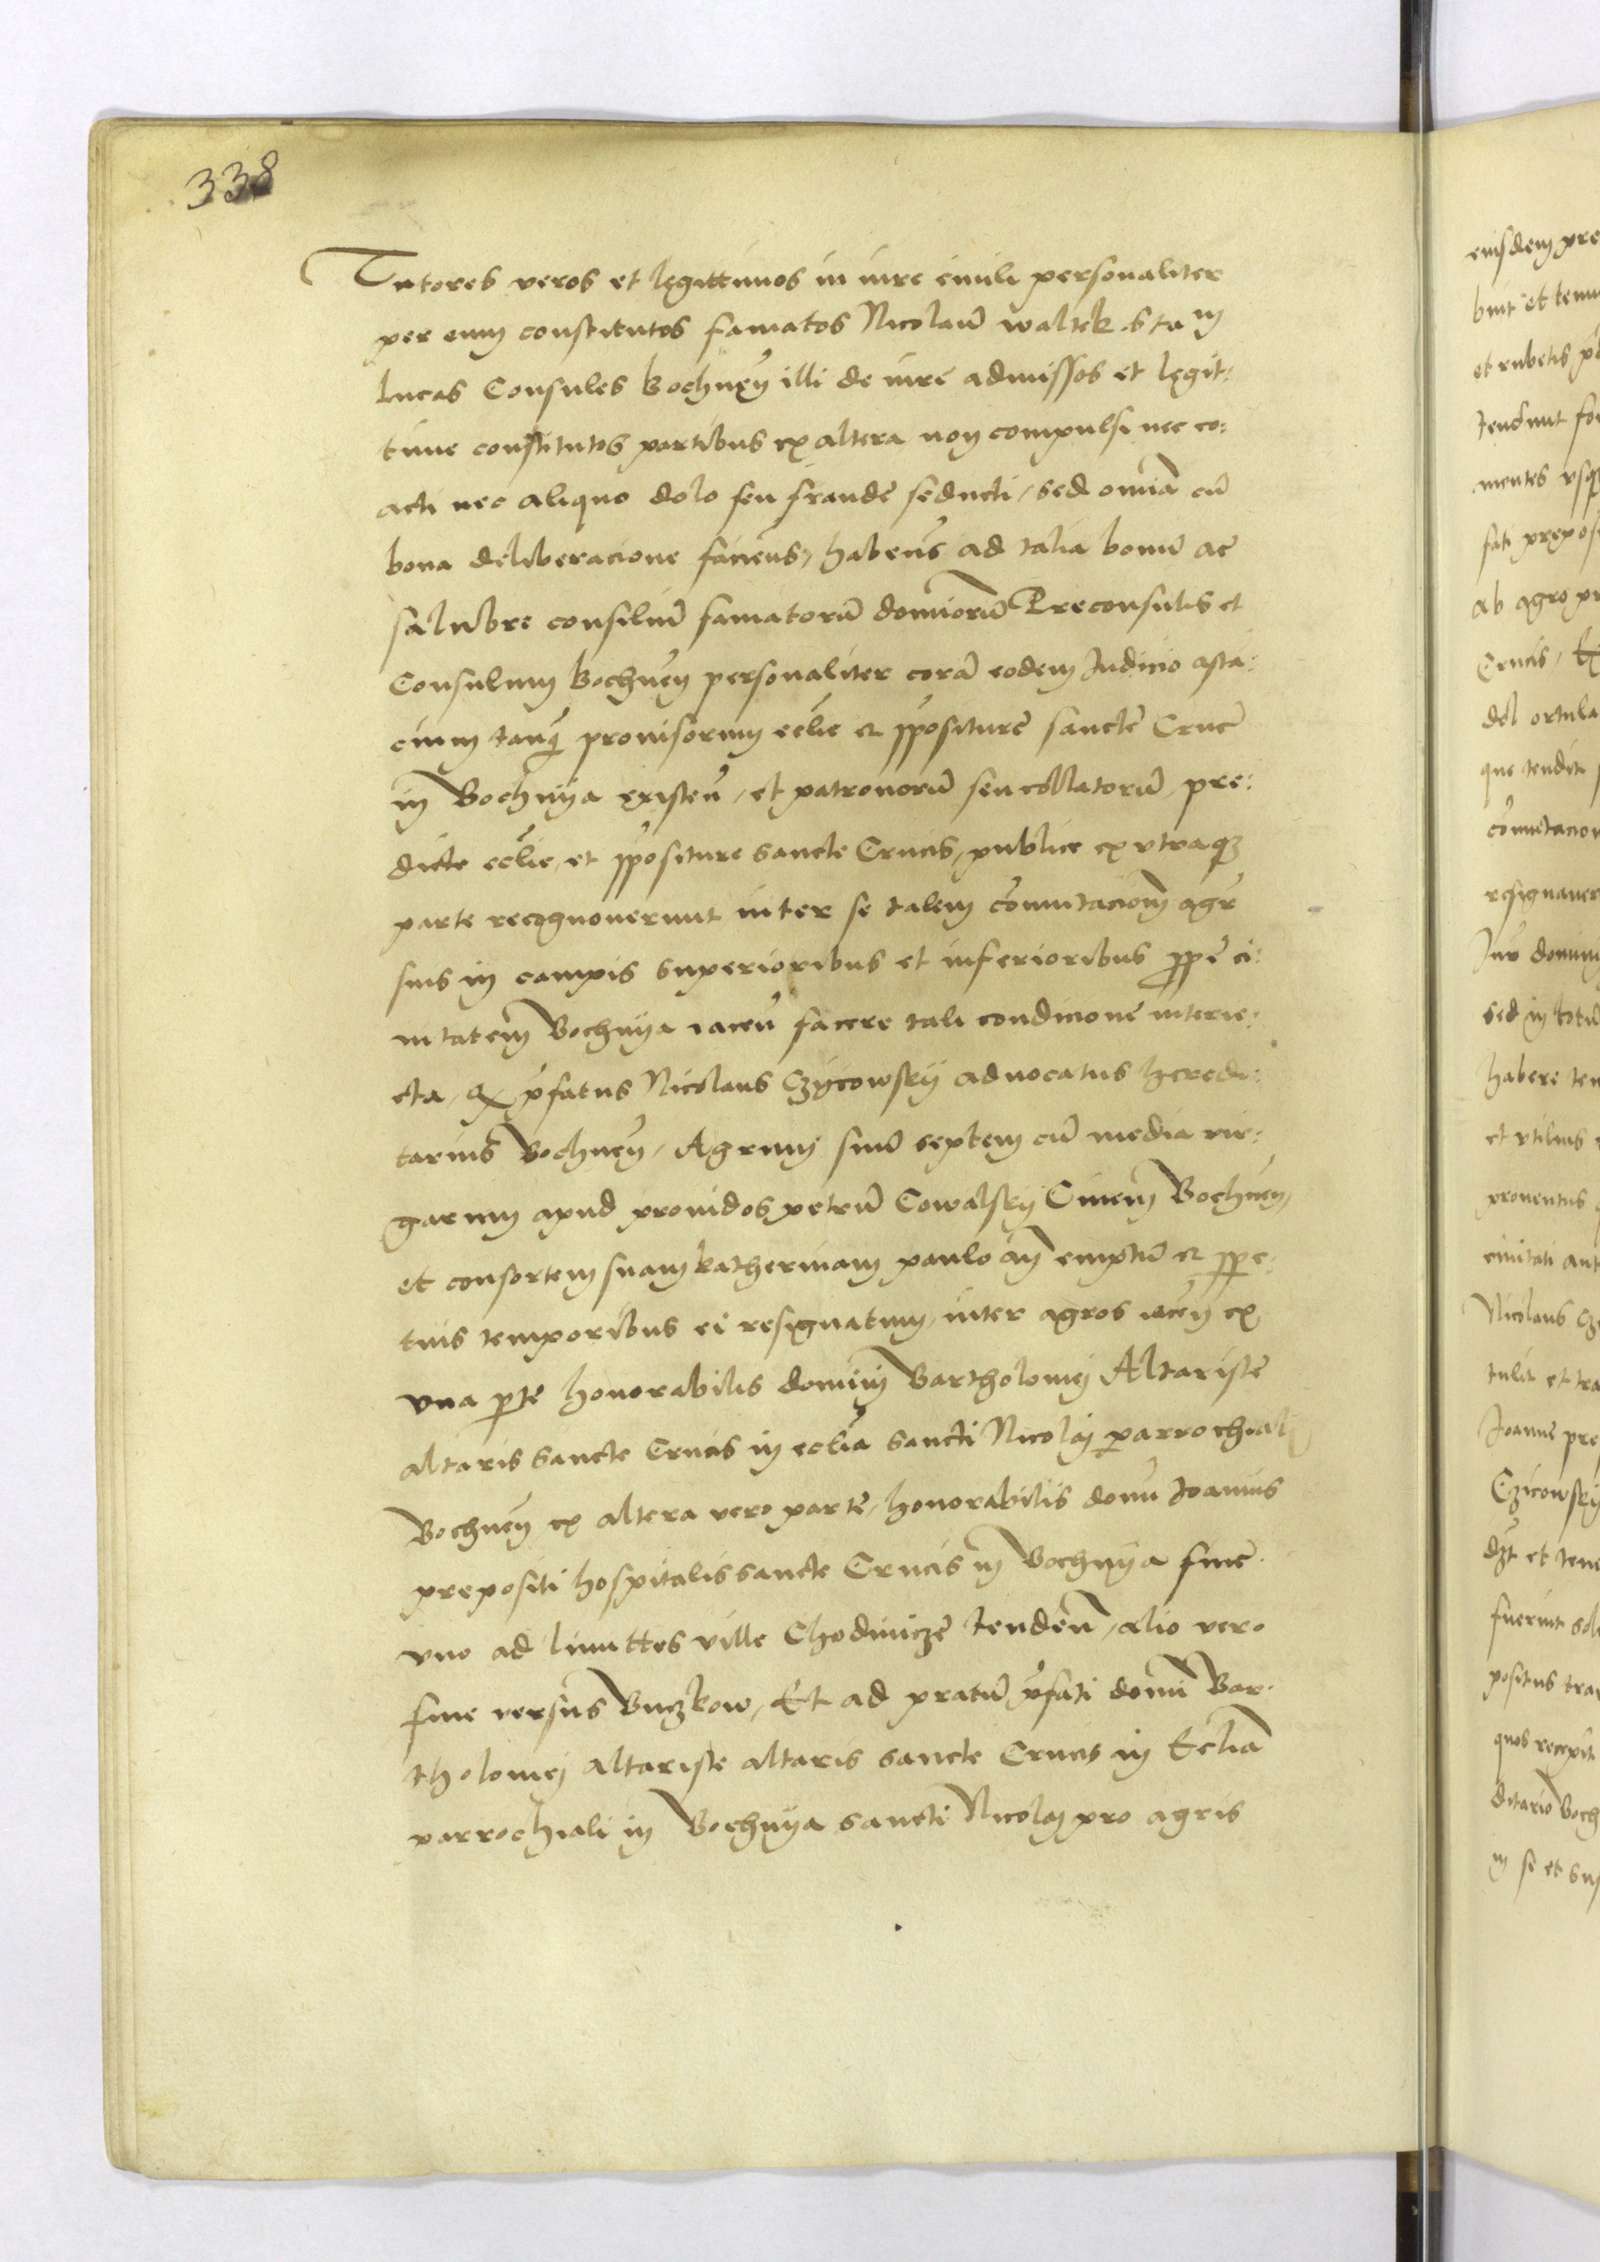 338
Tutores veros et legittimos in iure ciuili personaliter
per eum constitutos famatos Nicolaum waltek
lucas Consules bochnen illi de iure admissos et legit:
time constitutos partibus ex altera non compulsi nec co:
acti nec aliquo dolo seu fraude seducti, sed omnia cum
bona deliberacione faciens, habens ad talia bonum ac
salubre consilium famatorum dominorum Preconsulis et
Consulum bochnen personaliter coram eodem Iudicio asta:
cium tanq prouisorum eclie et ppositure sancte Cruc
in Bochnya existen, et patronorum seu collatorum, pre:
dicte eclie, et ppositure sancte Crucis, publice ex vtraq
parte recognouerunt inter se talem comutacionem agr
suis in campis superioribus et inferioribus ppe ci:
uitatem Bochnya iacen facere tali condicione interie:
cta, q pfatus Nicolaus Czycowsky aduocatus heredi:
tarius Bochnen, Agrum suum septem cum media vir:
garum apud prouidos petrum Cowalsky Ciuem Bochnen
et consortem suam katherinam paulo an emptum et ppe:
tuis temporibus ei resignatum, inter agros iacen ex
vna parte honorabilis domini Bartholomej Altariste
altaris sancte Crucis in eclia sancti Nicolaj parrochiali
Bochnen ex altera vero parte, honorabilis domi Ioannis
prepositi hospitalis sancte Crucis in Bochnya fine
vno ad limittes ville Chodinicze tenden, alio vero
fine versus Buczkow, Et ad pratum pfati domi Bar:
tholomej altariste altaris sancte Crucis in Eclia
parrochiali in Bochnya sancti Nicolaj pro agris
eiusdem pre
et rubetis
ab agro
Crucis,
del ortula
que tendit
comutacion
resignauer
sed in totum
habere ten
et vtilius
prouentus
ciuitati ant
Nicolaus Cz
tulit et tra
Czicowsky
et tene
fuerint sol
positus tra
quos recepit
ditario Boch
in se et su